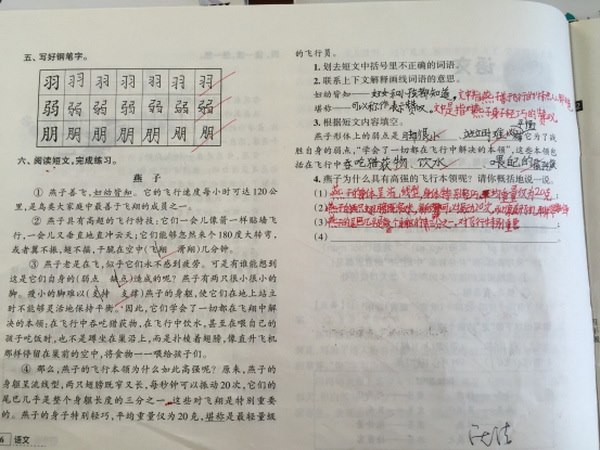 五、写好钢笔字。
羽 羽 羽 羽 羽 羽 羽
弱 弱 弱 弱 弱 弱 弱
朋 朋 朋 朋 朋 朋 朋
六、阅读短文,完成练习。
燕 子
① 燕子善飞,妇幼皆知。它的飞行速度每小时可达120公
里,是鸟类大家庭中最善于飞翔的成员之一。
② 燕子具有高超的飞行特技:它们一会儿像箭一样贴墙飞
行,一会儿又垂直地直冲云天;它们能够忽然来个180度大转弯,
或者翼不振,翅不摇,干脆在空中(飞翔 滑翔)几分钟。
③ 燕子老是在飞,似乎它们永不感到疲劳。可是有谁能想到
这是它们自身的(弱点 缺点)造成的呢?燕子有两只很小很小的
脚。瘦小的脚难以(支持 支撑)燕子的身躯,使它们在地上站立
时不能够灵活地保持平衡。因此,它们学会了一切都在飞翔中解
决的本领:在飞行中吞吃猎获物,在飞行中饮水,甚至在喂自己的
孩子吃饭时,也不是蹲坐在巢沿上,而是扑棱着翅膀,像直升飞机
那样停留在巢前的空中,将食物一一喂给孩子们。
④ 那么,燕子的飞行本领为什么如此高强呢?原来,燕子的
身躯呈流线型,两只翅膀既窄又长,每秒钟可以振动20次,它们的
尾巴几乎是整个身躯长度的三分之一,这些对飞翔是特别重
要的。燕子的身子特别轻巧,平均重量仅为20克,堪称是最轻量级
6 语文
的飞行员。
1. 划去短文中括号里不正确的词语。
2. 联系上下文解释画线词语的意思。
妇幼皆知——妇女和小孩都知道。
堪称——可以称作,表示赞叹。
3. 根据短文内容填空。
燕子形体上的弱点是脚很小,
胜自身的弱点,“学会了一切都在飞行中解决的本领”,这些本领包
括在飞行中吞吃猎获物、饮水、
4. 燕子为什么具有高强的飞行本领呢?请你概括地说一说。
(1)
(2)
(3)
(4)